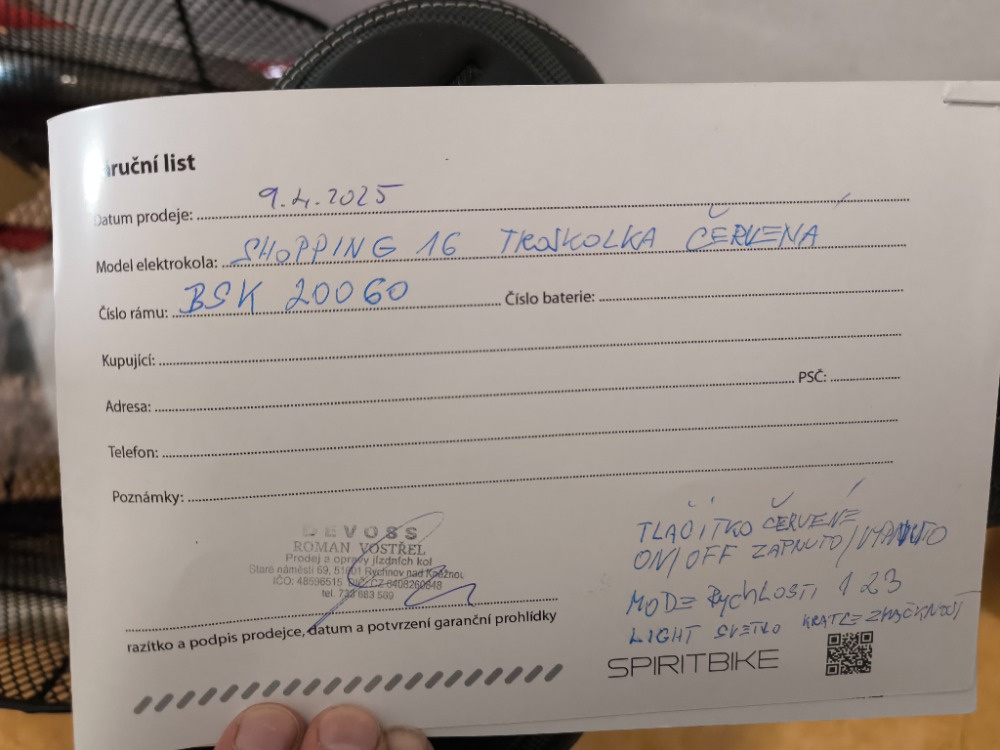 áruční list
Datum prodeje: 9.4.2025
Model elektrokola: SHOPPING 16 TROJKOLKA ČERVENÁ
Číslo rámu: BSK 20060 Číslo baterie:
Kupující:
Adresa: PSČ:
Telefon:
Poznámky:
DEVOSS
ROMAN VOSTŘEL
Prodej a opravy jízdních kol
Staré náměstí 69, 51601 Rychnov nad Kněžnou
IČO: 48596515 DIČ: CZ
tel.
razítko a podpis prodejce, datum a potvrzení garanční prohlídky
TLAČÍTKO ČERVENÉ
ON/OFF ZAPNUTO/VYPNUTO
MODE RYCHLOSTI 1 2 3
LIGHT SVĚTLO KRÁTCE ZMÁČKNOUT
SPIRITBIKE